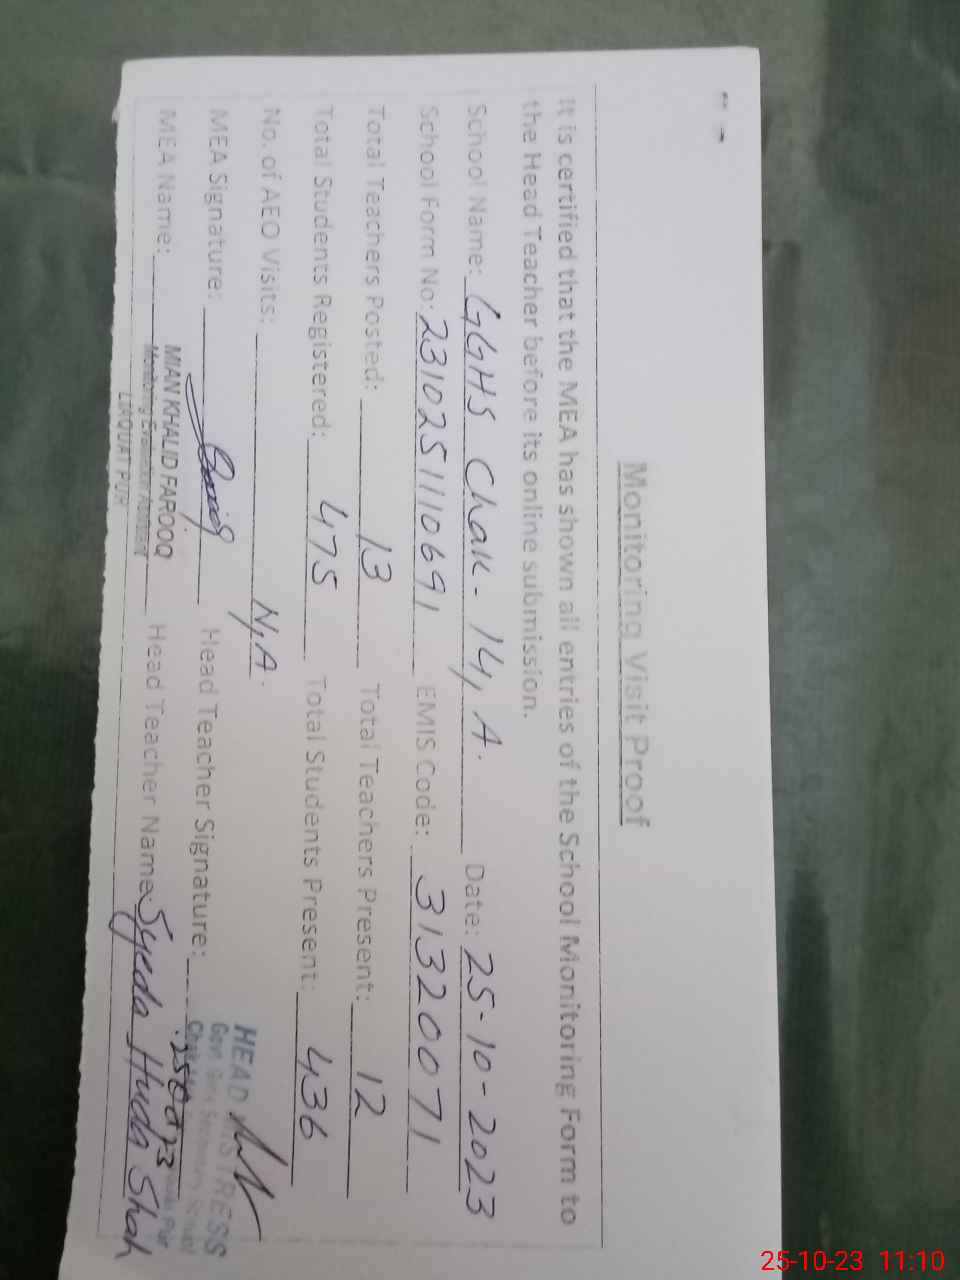 Monitoring Visit Proof
It is certified that the MEA has shown all entries of the School Monitoring Form to
the Head Teacher before its online submission.
School Name: GGHS Chak - 14, A. Date: 25-10-2023
School Form No: 2310251110691 EMIS Code: 31320071
Total Teachers Posted: 13 Total Teachers Present: 12
Total Students Registered: 475 Total Students Present: 436
No. of AEO Visits: N,A.
MEA Signature: Head Teacher Signature:
HEAD MISTRESS
Govt. Girls Secondary School
MEA Name: MIAN KHALID FAROOQ Head Teacher Name: Syeda Huda Shah
Monitoring Evaluation Assistant
LIAQUAT PUR
25-10-23 11:10